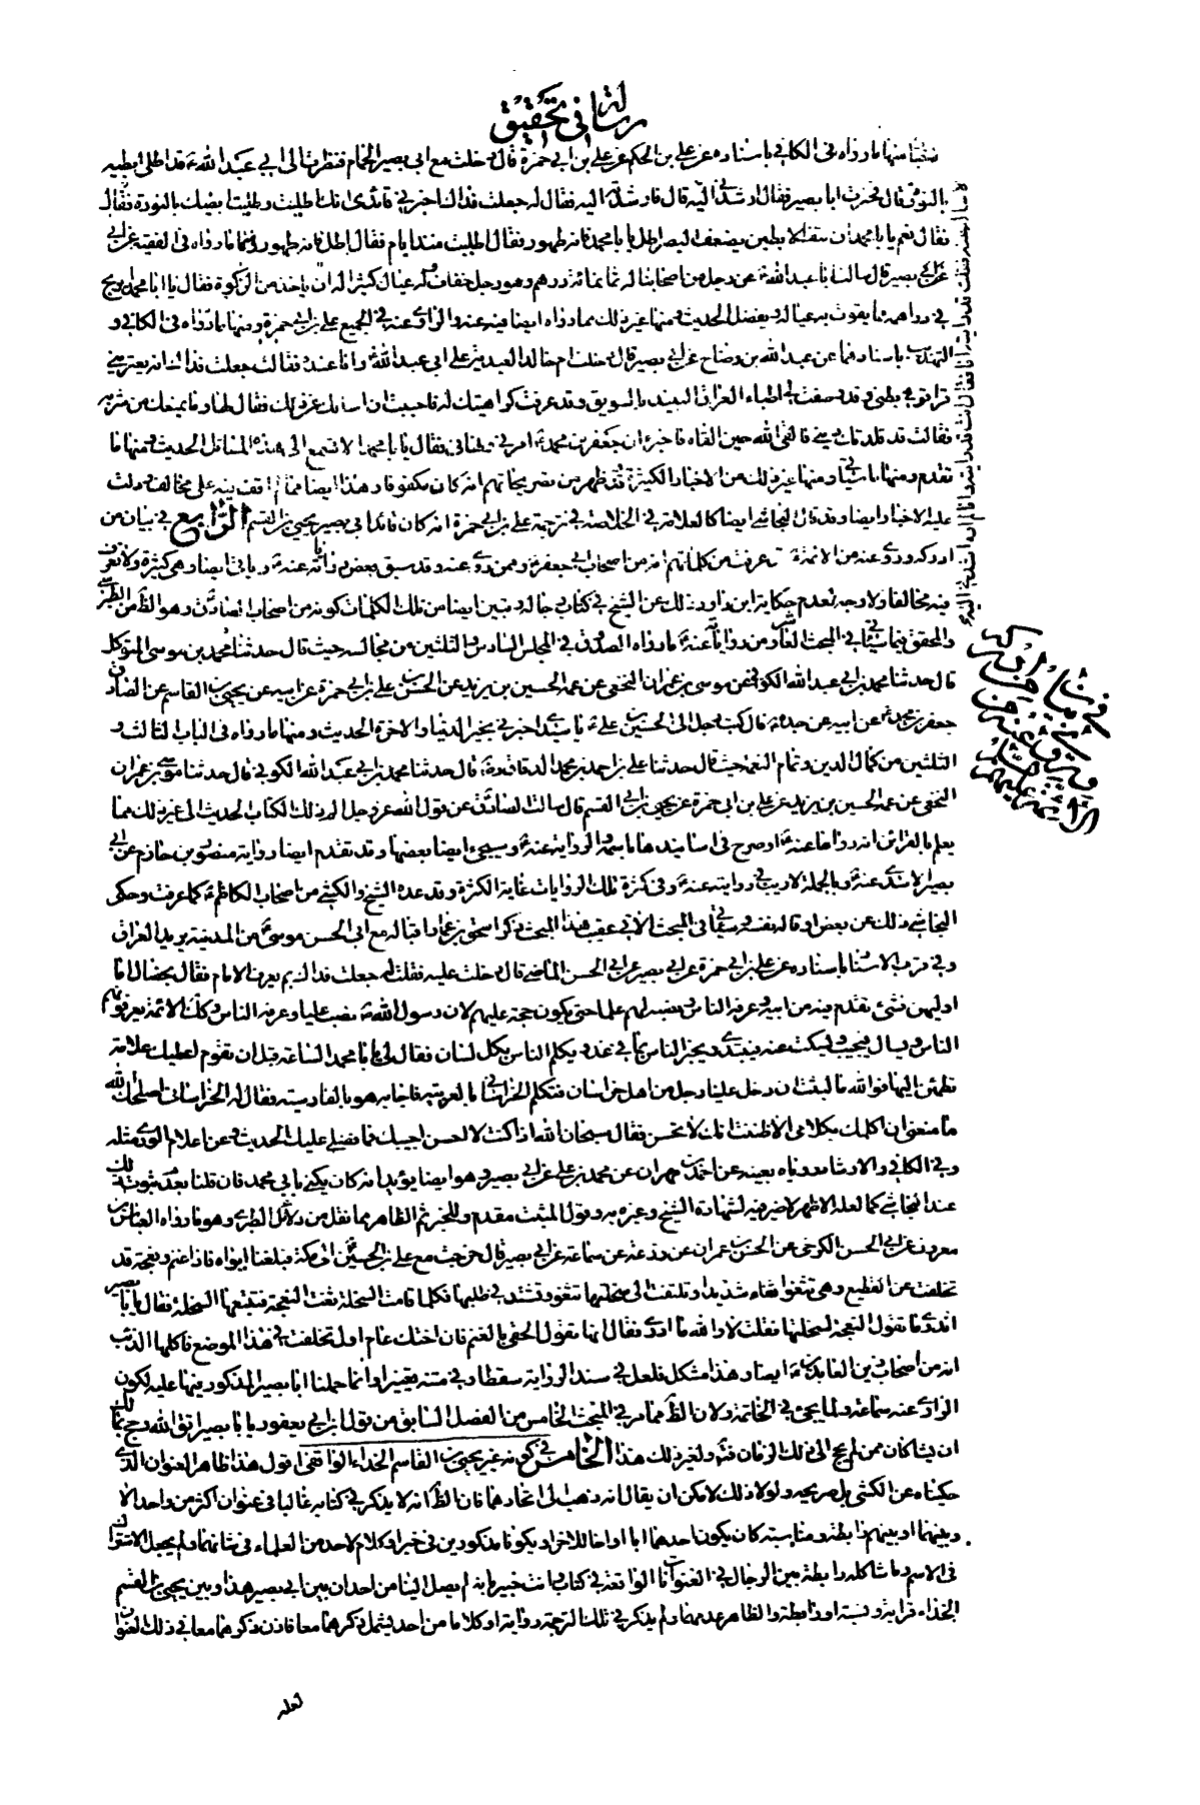 رسالة في تحقيق
منها ما رواه في الكافي باسناده عن علي بن الحكم عن علي بن ابي حمزة قال دخلت مع ابي بصير الحمام فنظرت الى ابي عبد الله ع قد اطلى ابطيه
بالنورة قال فخبرت ابا بصير فقال ارشدني اليه قال فارشدته اليه فقال له جعلت فداك اخبرني قائدي انك اطليت وطليت ابطيك بالنورة فقال
فقال نعم يا با محمد ان نتف الابطين يضعف البصر اطل يا با محمد فانه طهور فقال اطليت منذ ايام فقال اطل فانه طهور ومنها ما رواه في الفقيه عن ابي
بصير قال سالت ابا عبد الله ع عن رجل من اصحابنا له ثمانمائة درهم وهو رجل خفاف وله عيال كثير اله ان ياخذ من الزكوة فقال يا ابا محمد ايربح
في دراهمه ما يقوت به عياله ويفضل الحديث ومنها غير ذلك مما رواه ايضا فيه عنه والراوي عنه في الجميع علي بن ابي حمزة ومنها ما رواه في الكافي و
التهذيب باسنادهما عن عبد الله بن وضاح عن ابي بصير قال دخلت ام خالد العبدية على ابي عبد الله ع وانا عنده فقالت جعلت فداك انه يعتريني
قراقر في بطني وقد وصفت لي اطباء العراق النبيذ بالسويق وقد عرفت كراهيتك له فاحببت ان اسالك عن ذلك فقال لها وما يمنعك من شربه
فقالت قد قلدتك ديني فالقى الله حين القاه فاخبره ان جعفر بن محمد ع امرني ونهاني فقال يا با محمد الا تسمع الى هذه المسائل الحديث ومنها ما
تقدم ومنها ما سياتي ومنها غير ذلك من الاخبار الكثيرة وقد ظهر من تصريحاتهم انه كان مكفوفا وهذا ايضا مما لم اقف فيه على مخالف ودلت
عليه الاخبار ايضا وقد قال النجاشي ايضا كالعلامة في الخلاصة في ترجمة علي بن ابي حمزة انه كان قائد ابي بصير يحيى بن القسم الرابع في بيان من
ادركه وروى عنه من الائمة ع عرفت من كلماتهم انه من اصحاب ابي جعفر ع وممن روى عنه وقد سبق بعض رواياته عنه ع وياتي ايضا وهي كثيرة ولا نعرف
فيه مخالفا ولا وجه لعدم حكاية ابن داود ذلك عن الشيخ في كتاب رجاله وتبين ايضا من تلك الكلمات كونه من اصحاب الصادق ع وهو الظاهر من الطبرسي
والمحقق فيما سياتي في المبحث العاشر ومن رواياته عنه ع ما رواه الصدوق في المجلس السادس والثلثين من مجالسه حيث قال حدثنا محمد بن موسى المتوكل
قال حدثنا محمد بن ابي عبد الله الكوفي عن موسى بن عمران النخعي عن عمه الحسين بن يزيد عن الحسن بن علي بن ابي حمزة عن ابيه عن يحيى بن القاسم عن الصادق
جعفر بن محمد ع عن ابيه عن جده ع قال كتب رجل الى الحسين بن علي ع يا سيدي اخبرني بخير الدنيا والاخرة الحديث ومنها ما رواه في الباب الثالث و
الثلثين من كمال الدين وتمام النعمة حيث قال حدثنا علي بن احمد بن محمد الدقاق ره قال حدثنا محمد بن ابي عبد الله الكوفي قال حدثنا موسى بن عمران
النخعي عن عمه الحسين بن يزيد عن علي بن ابي حمزة عن يحيى بن ابي القسم قال سالت الصادق ع عن قول الله عز وجل الم ذلك الكتاب الحديث الى غير ذلك مما
يعلم بالقرائن انه رواها عنه ع او صرح في اسانيدها باسمه والرواية عنه ع وسيجيء ايضا بعضها وقد تقدم ايضا رواية منصور بن حازم عن ابي
بصير الاسدي عنه ع وبالجملة لا ريب في روايته عنه ع وفي كثرة تلك الروايات غاية الكثرة وقد عده الشيخ والكشي من اصحاب الكاظم ع كما عرفت وحكى
النجاشي ذلك عن بعض او قاله بنفسه وسياتي في المبحث الاتي عقيب هذا المبحث ذكر اسحق بن عمار اقباله مع ابي الحسن موسى ع من المدينة يريد العراق
وفي قرب الاسناد باسناده عن علي بن ابي حمزة عن ابي بصير عن ابي الحسن الماضي ع قال دخلت عليه فقلت له جعلت فداك بم يعرف الامام فقال بخصال اما
اوليهن فشيء تقدم فيه من ابيه وعرفه الناس ونصبه لهم علما حتى يكون حجة عليهم لان رسول الله ص نصب عليا وعرفه الناس وكذلك الائمة يعرفونهم
الناس ويسال فيجيب ويسكت عنه فيبتدي ويخبر الناس بما في غد ويكلم الناس بكل لسان فقال لي يا با محمد الساعة قبل ان تقوم اعطيك علامة
تطمئن اليها فوالله ما لبثت ان دخل علينا رجل من اهل خراسان فتكلم الخراساني بالعربية فاجابه هو بالفارسية فقال له الخراساني اصلحك الله
ما منعني ان اكلمك بكلامي الا ظننت انك لا تحسن فقال سبحان الله اذا كنت لا احسن اجيبك فما فضلي عليك الحديث وعن اعلام الورى مثله
وفي الكافي والارشاد روياه بعينه عن احمد بن مهران عن محمد بن علي عن ابي بصير وهو ايضا يؤيد انه كان يكنى بابي محمد فان قلنا بعدم ثبوت ذلك
عند النجاشي كما لعله الاظهر لا ضير فيه لشهادة الشيخ وغيره به وقول المثبت مقدم وللخبر ثم الظاهر مما نقل من دلائل الطبري وهو ما رواه العباس بن
معروف عن ابي الحسن الكرخي عن الحسن بن عمران عن زرعة عن سماعة عن ابي بصير قال خرجت مع علي بن الحسين ع الى مكة فبلغنا ابواء فاذا غنم ونعجة قد
تخلفت عن القطيع وهي تثغوا ثغاء شديدا وتلتفت الى سخلتها تثغو وتشتد في طلبها فكلما قامت السخلة ثغت النعجة فتبعتها السخلة فقال يا با بصير
اتدري ما تقول النعجة لسخلتها فقلت لا والله ما ادري فقال انها تقول الحقي بالغنم فان اختك عام اول تخلفت في هذا الموضع فاكلها الذئب
انه من اصحاب زين العابدين ع ايضا وهذا مشكل فلعل في سند الرواية سقطا وفي متنه تغييرا وانما حملنا ابا بصير المذكور فيها عليه لكون
الراوي عنه سماعة ولما يجيء في الخاتمة ولان الظاهر مما مر في المبحث الخامس من الفصل السابق من قول ابن ابي يعفور يا با بصير اتق الله وحج بمالك
ان يشا كان ممن لم يحج الى ذلك الزمان فتدبر ولغير ذلك هذا الخامس في كونه غير يحيى بن القاسم الحذاء الواقفي اقول هذا ظاهر العنوان الذي
حكيناه عن الكشي بل صريحه ولولا ذلك لامكن ان يقال انه ذهب الى اتحادهما فان الظاهر انه لا يذكر في كتابه غالبا في عنوان اكثر من واحد الا
وبينهما او بينهم رابطة ومناسبة كان يكون احدهما ابا او اخا للاخر او يكونا مذكورين في خبر او كلام لاحد من العلماء في شانهما ولم يجعل الاشتراك
في الاسم وما شاكله رابطة بين الرجال في العنوانات الواقعة في كتابه وانت خبير بانه لم يصل الينا من احد ان بين ابي بصير هذا وبين يحيى بن القسم
الحذاء قرابة ونسبة او رابطة والظاهر عدمها ولم يذكر في تلك الترجمة رواية او كلاما من احد يشمل ذكرهما معا فاذن ذكرهما معا في ذلك العنوان
لعله